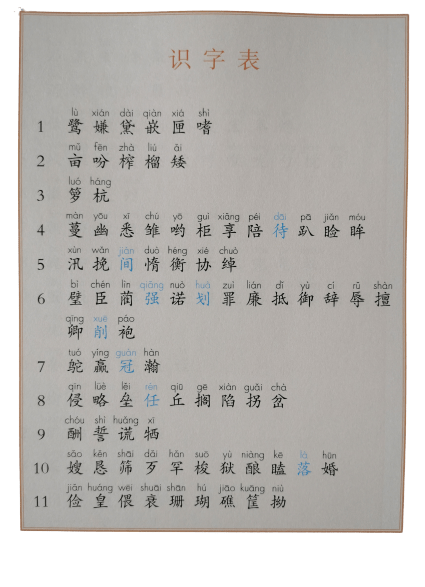 识字表
lù xián dài qiàn xiá shì
1 鹭 嫌 黛 嵌 匣 嗜
mǔ fēn zhà liú ǎi
2 亩 吩 榨 榴 矮
luó háng
3 箩 杭
màn yōu xī chú yō guì xiǎng péi dāi pā jiǎn móu
4 蔓 幽 悉 雏 哟 柜 享 陪 待 趴 睑 眸
xùn wǎn jiàn duò héng xié chuò
5 汛 挽 间 惰 衡 协 绰
bì chén lìn qiǎng nuò huá zuì lián dǐ yù cí rǔ shàn
6 璧 臣 蔺 强 诺 划 罪 廉 抵 御 辞 辱 擅
qīng xuē páo
卿 削 袍
tuó yíng guàn hàn
7 鸵 赢 冠 瀚
qīn lüè lěi rén qiū gē xiàn guǎi chà
8 侵 略 垒 任 丘 搁 陷 拐 岔
chóu shì huǎng xī
9 酬 誓 谎 牺
sǎo kěn shāi dǎi hǎn suō yù niàng kē là hūn
10 嫂 恳 筛 歹 罕 梭 狱 酿 瞌 落 婚
jiǎn huáng wēi shuāi shān hú jiāo kuāng niù
11 俭 皇 偎 衰 珊 瑚 礁 筐 拗